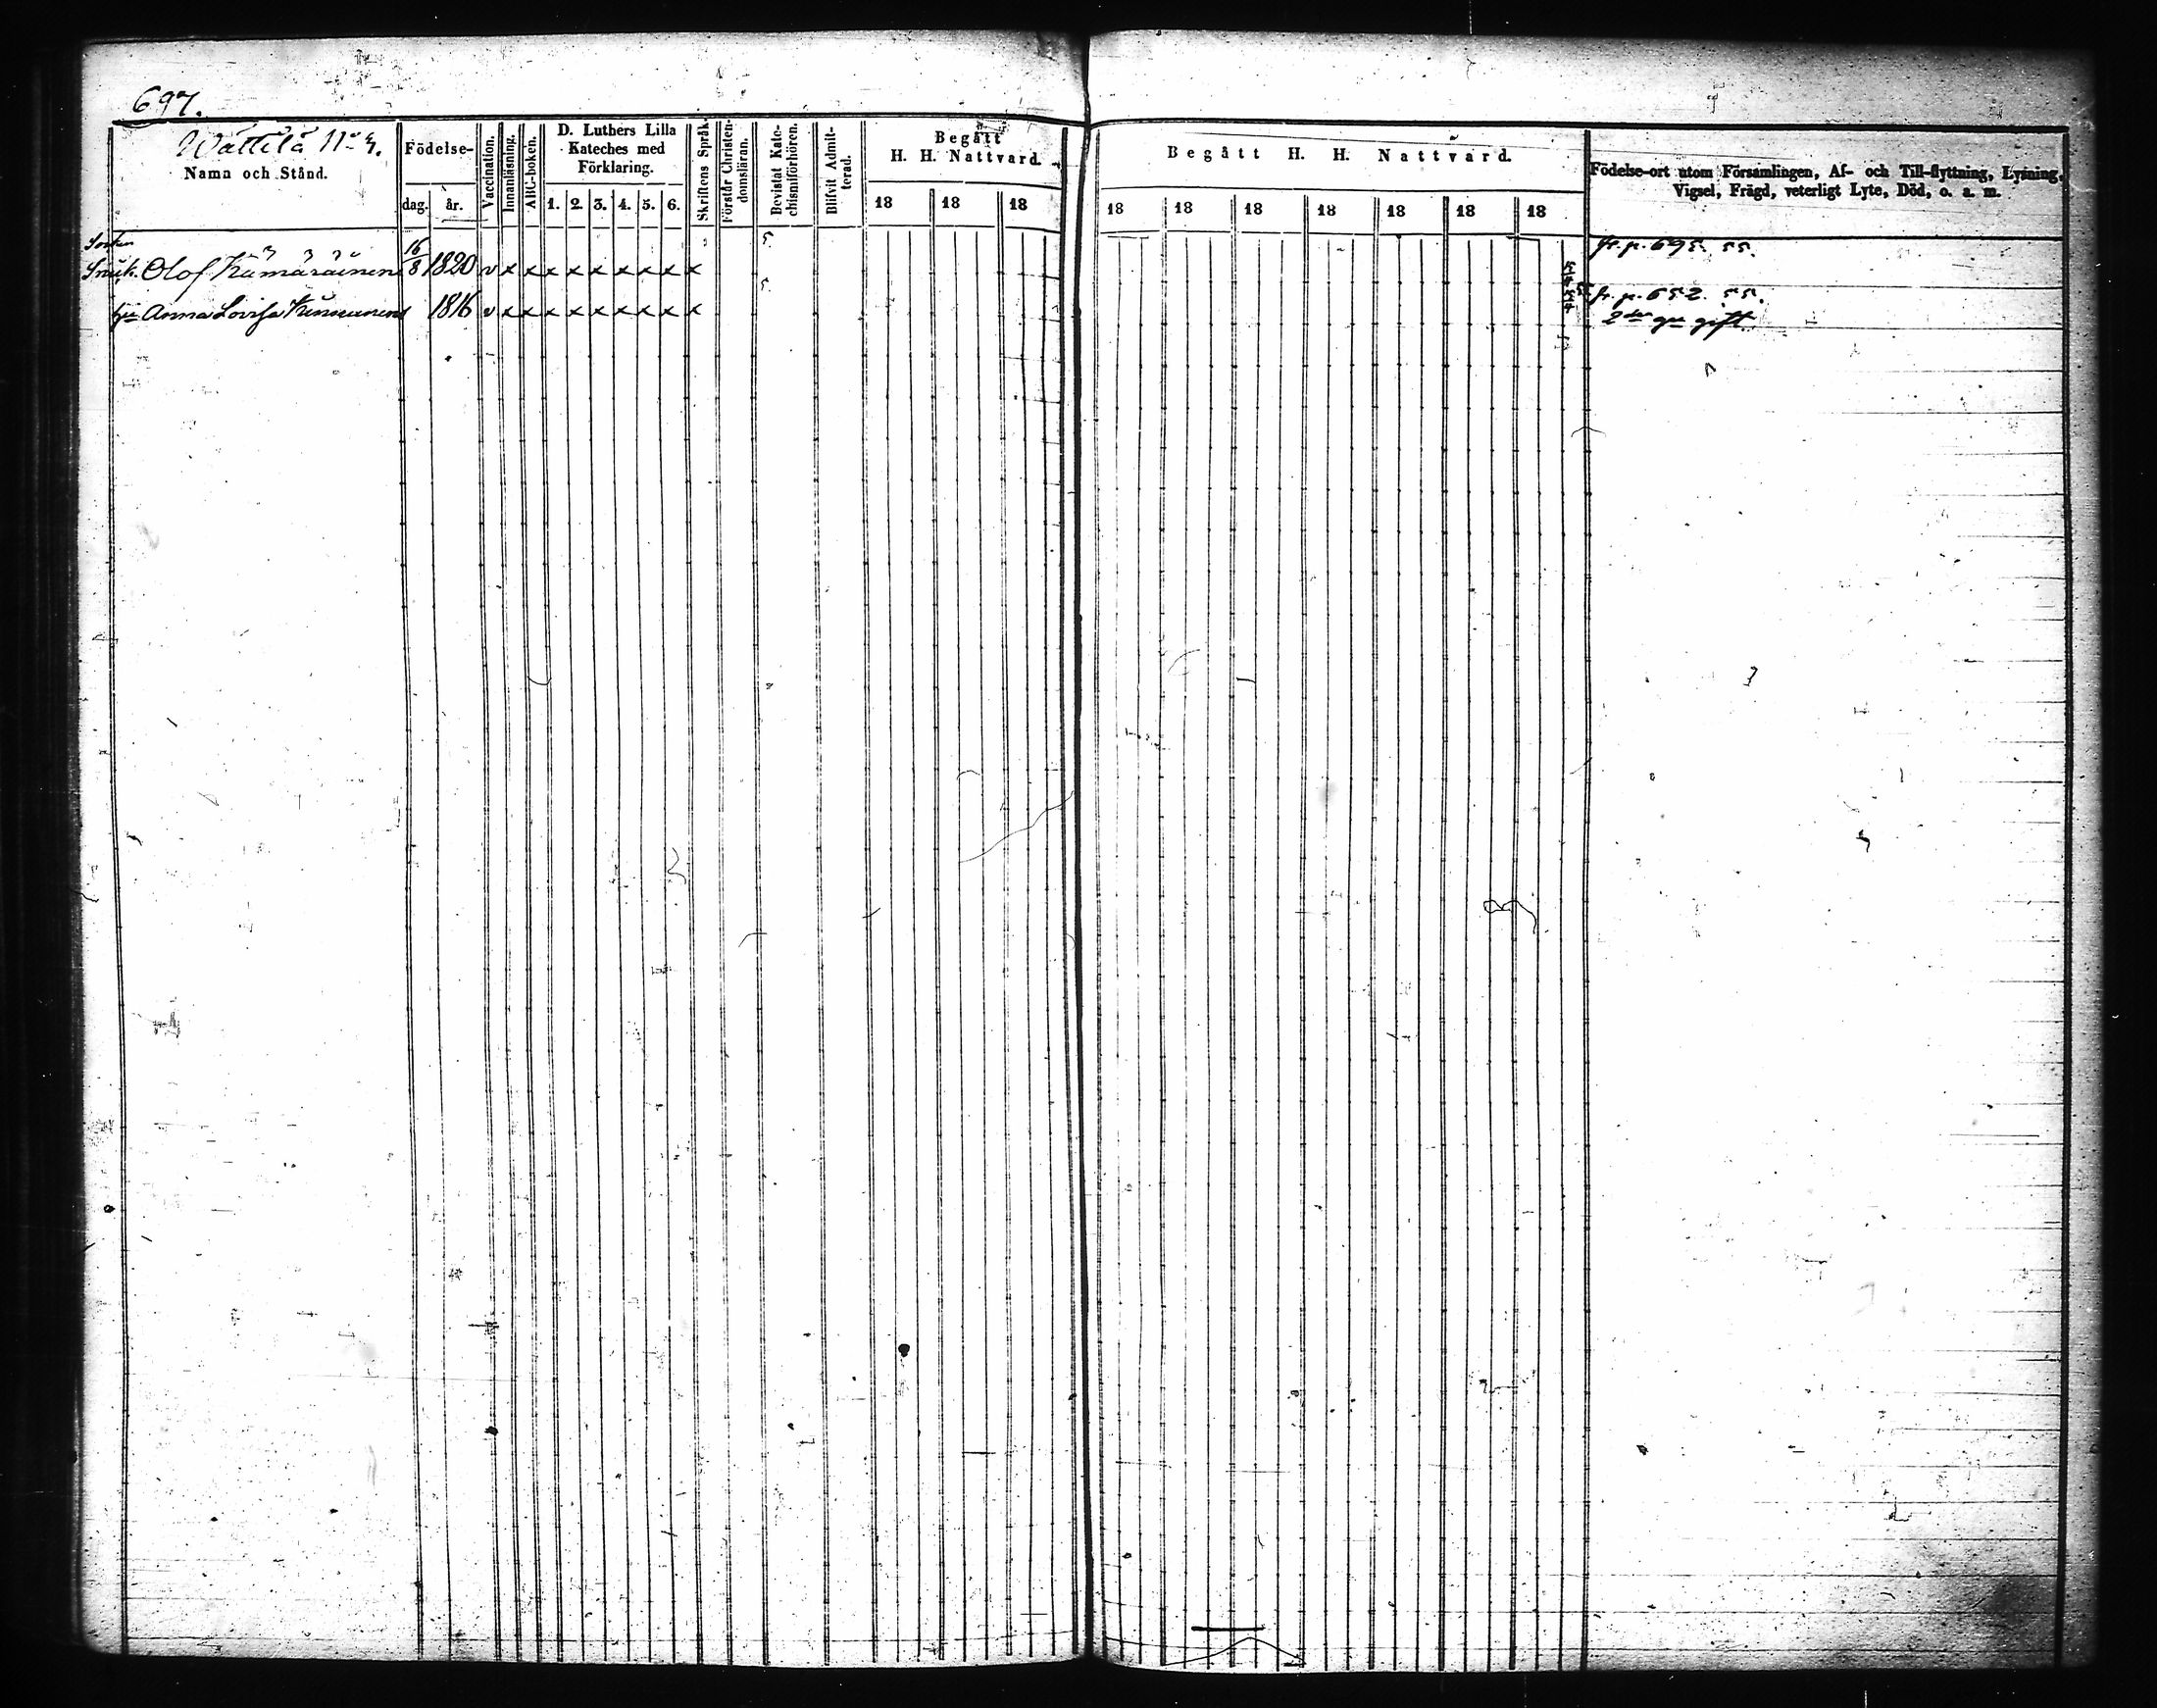 697.
Wättilä No 4.
Namn och Stånd.
Födelse-
dag.
år.
Vaccination.
Innanläsning.
ABC-boken.
D. Luthers Lilla
Kateches med
Förklaring.
1. 2. 3. 4. 5. 6.
Skriftens Språk.
Förstår Christen-
domsläran.
Bevistat Kate-
chismiförhören.
Blifvit Admit-
terad.
Begått
H. H. Nattvard.
18 18 18
Begått H. H. Nattvard.
18 18 18 18 18 18 18
Födelse-ort utom Församlingen, Af- och Till-flyttning, Lysning,
Vigsel, Frägd, veterligt Lyte, Död, o. a. m.
Socken
Olof Kämäräinen 16/8 1820 v x x x x x x x x x 5 fr. p. 695. 55.
hu Anna Lovisa Kinnunen 1816 v x x x x x x x x x 5 fr. p. 652. 55.
2dra gg gift.